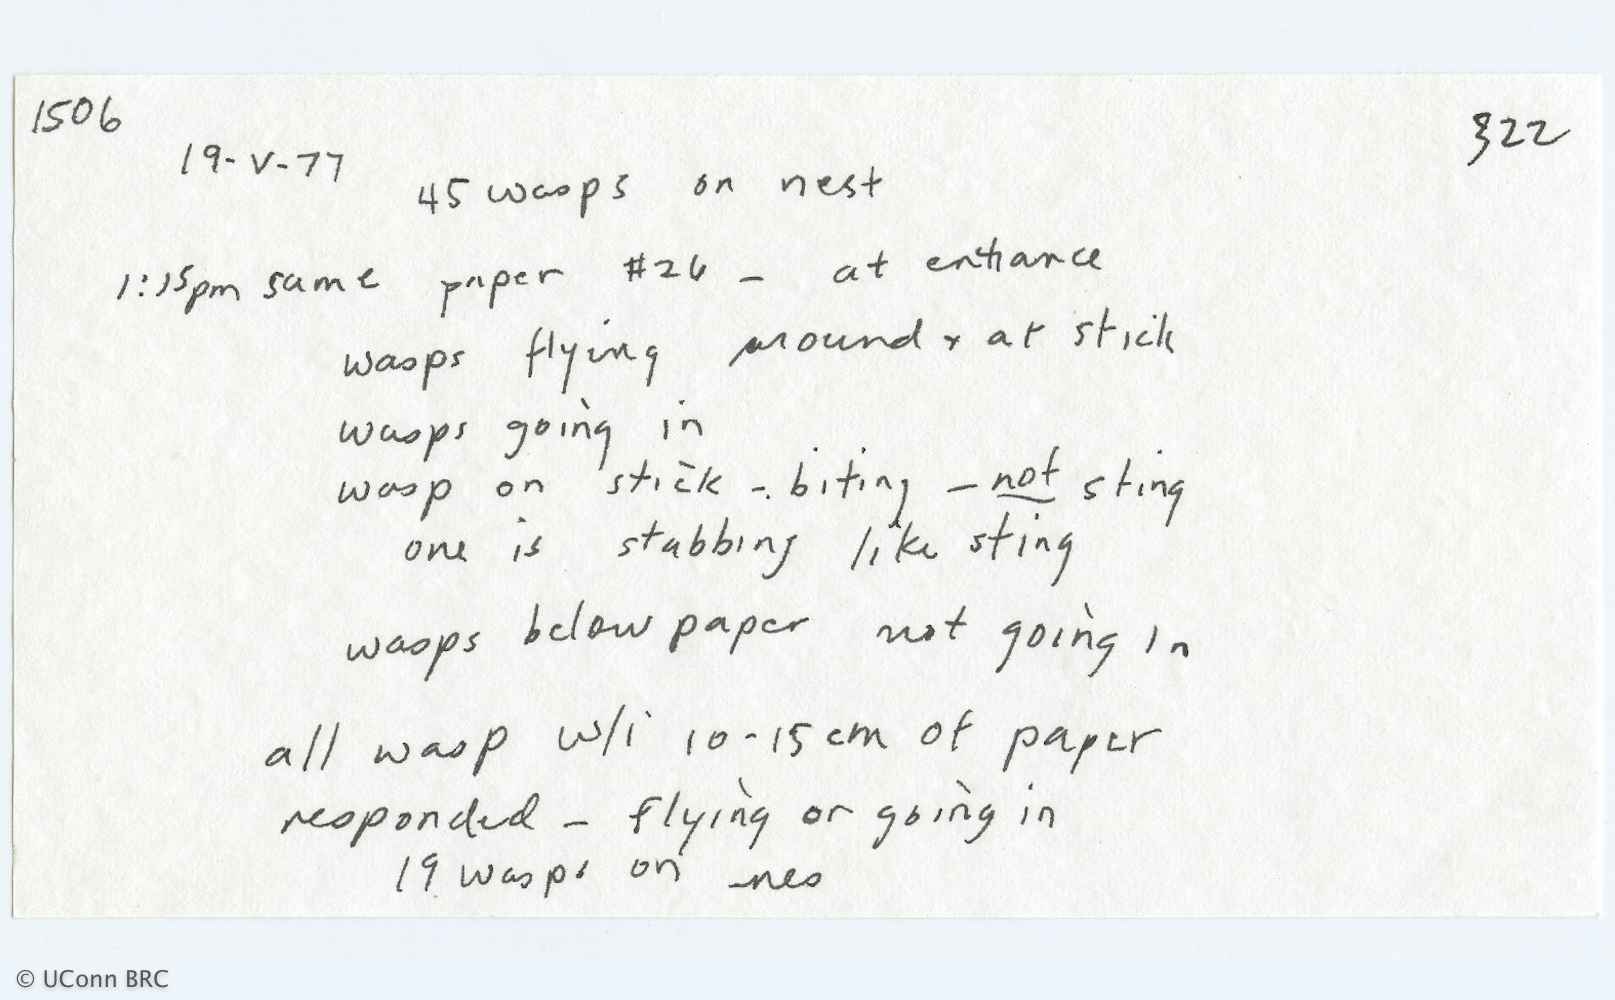 1506
322
19-V-77
45 wasps on nest
1:15pm same paper #26 - at entrance
wasps flying around + at stick
wasps going in
wasp on stick - biting - not sting
one is stabbing like sting
wasps below paper not going in
all wasp w/i 10-15 cm of paper
responded - flying or going in
19 wasps on nes
© UConn BRC